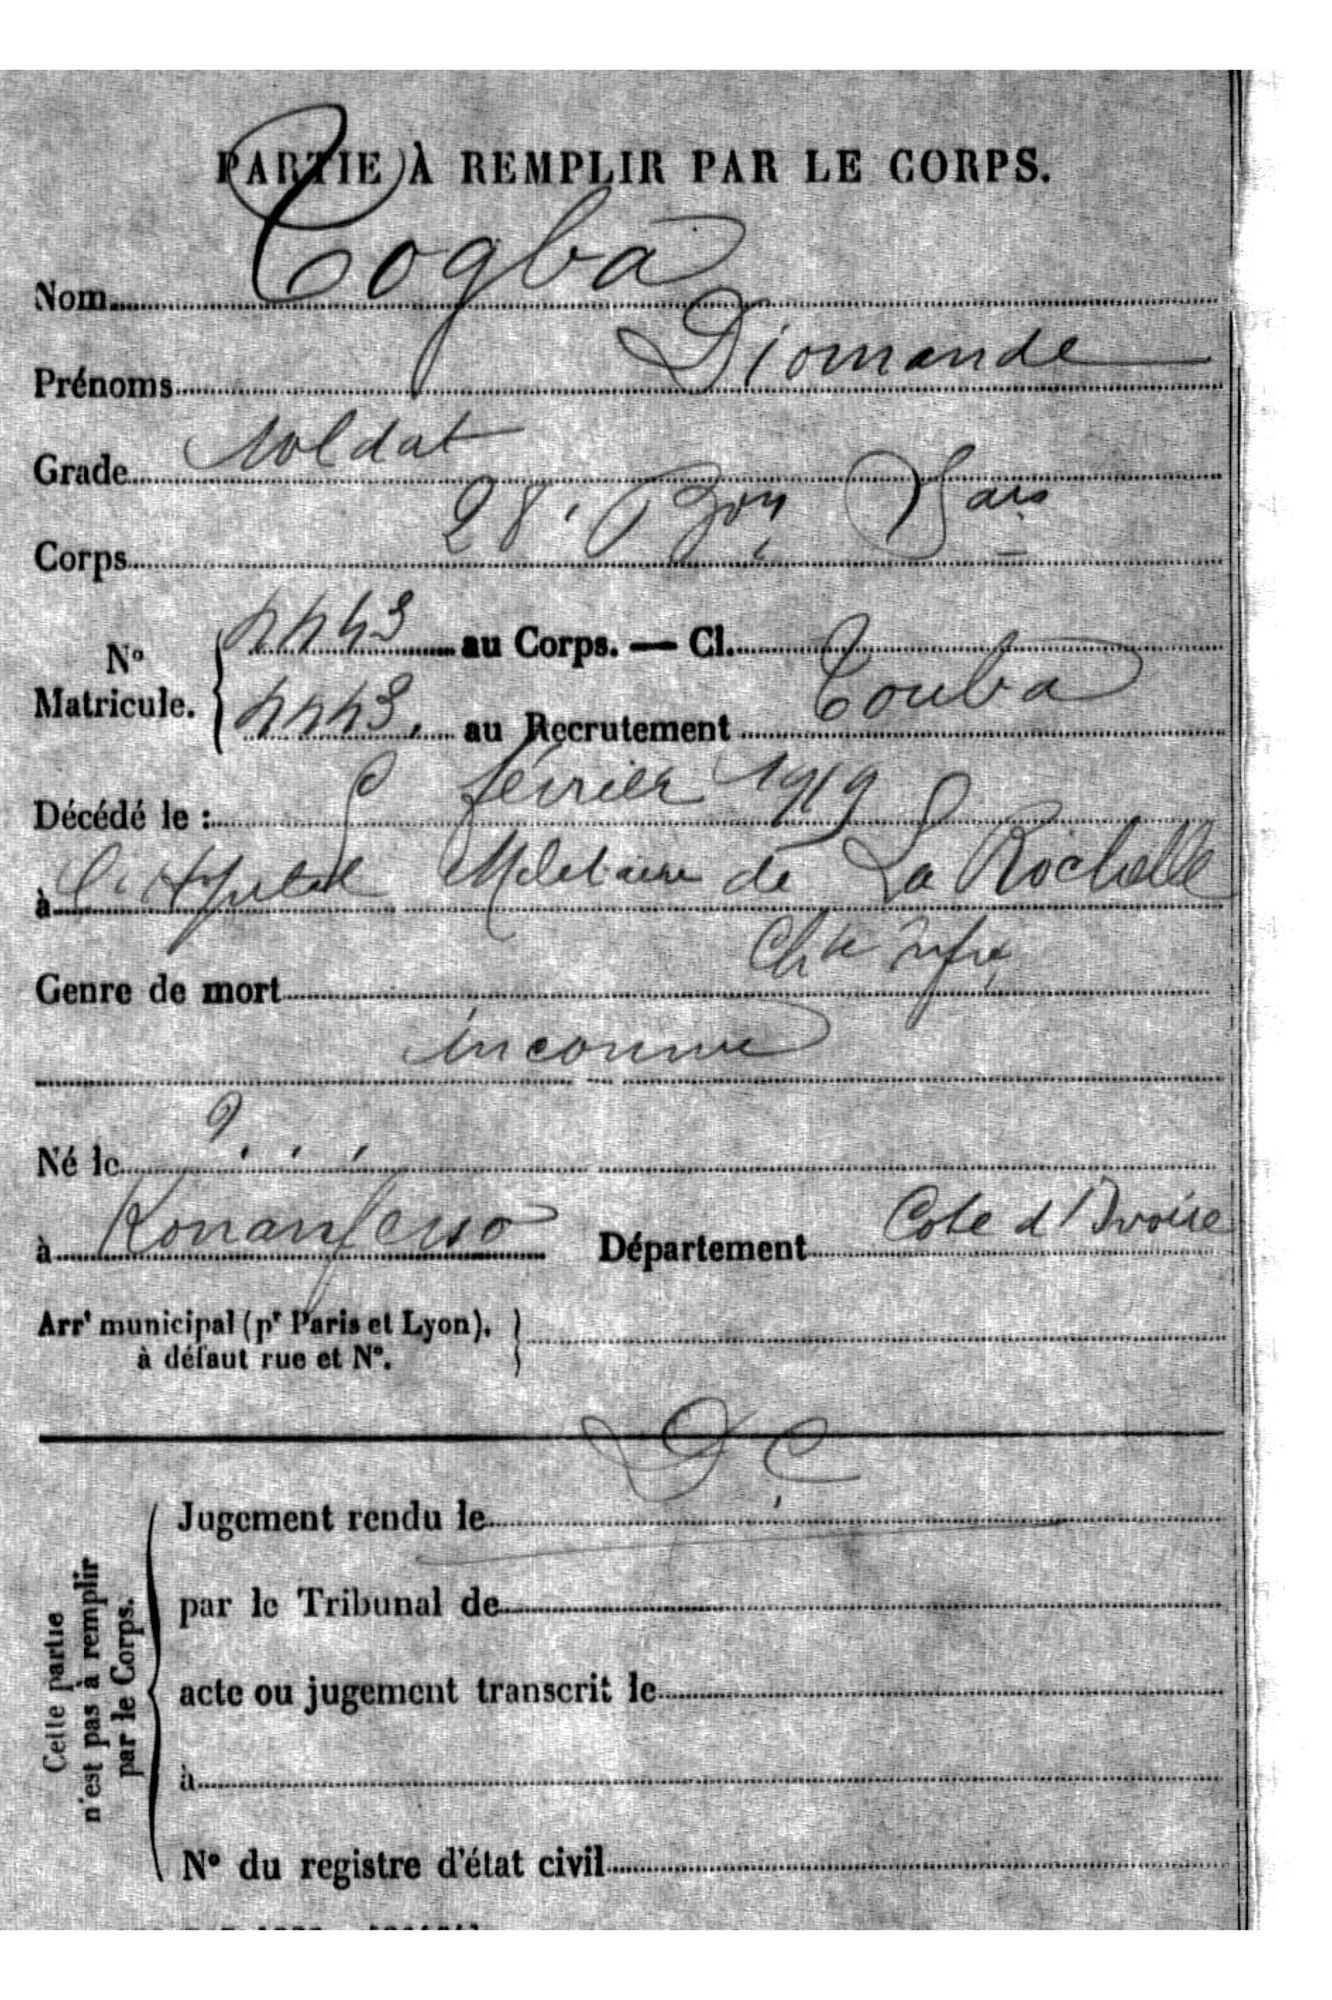 PARTIE À REMPLIR PAR LE CORPS.
Nom Togba
Prénoms Diomande
Grade Soldat
Corps 28e Bon Sais
No Matricule. { 4443 au Corps. — Cl.
4443. au Recrutement Touba
Décédé le : février 1919
à l'Hôpital Militaire de La Rochelle
Chte Infre
Genre de mort
inconnu
Né le ? . . .
à Département Cote d'Ivoire
Arrt municipal (pr Paris et Lyon), }
à défaut rue et No.
D C
Cette partie n'est pas à remplir par le Corps.
Jugement rendu le
par le Tribunal de
acte ou jugement transcrit le
à
No du registre d'état civil